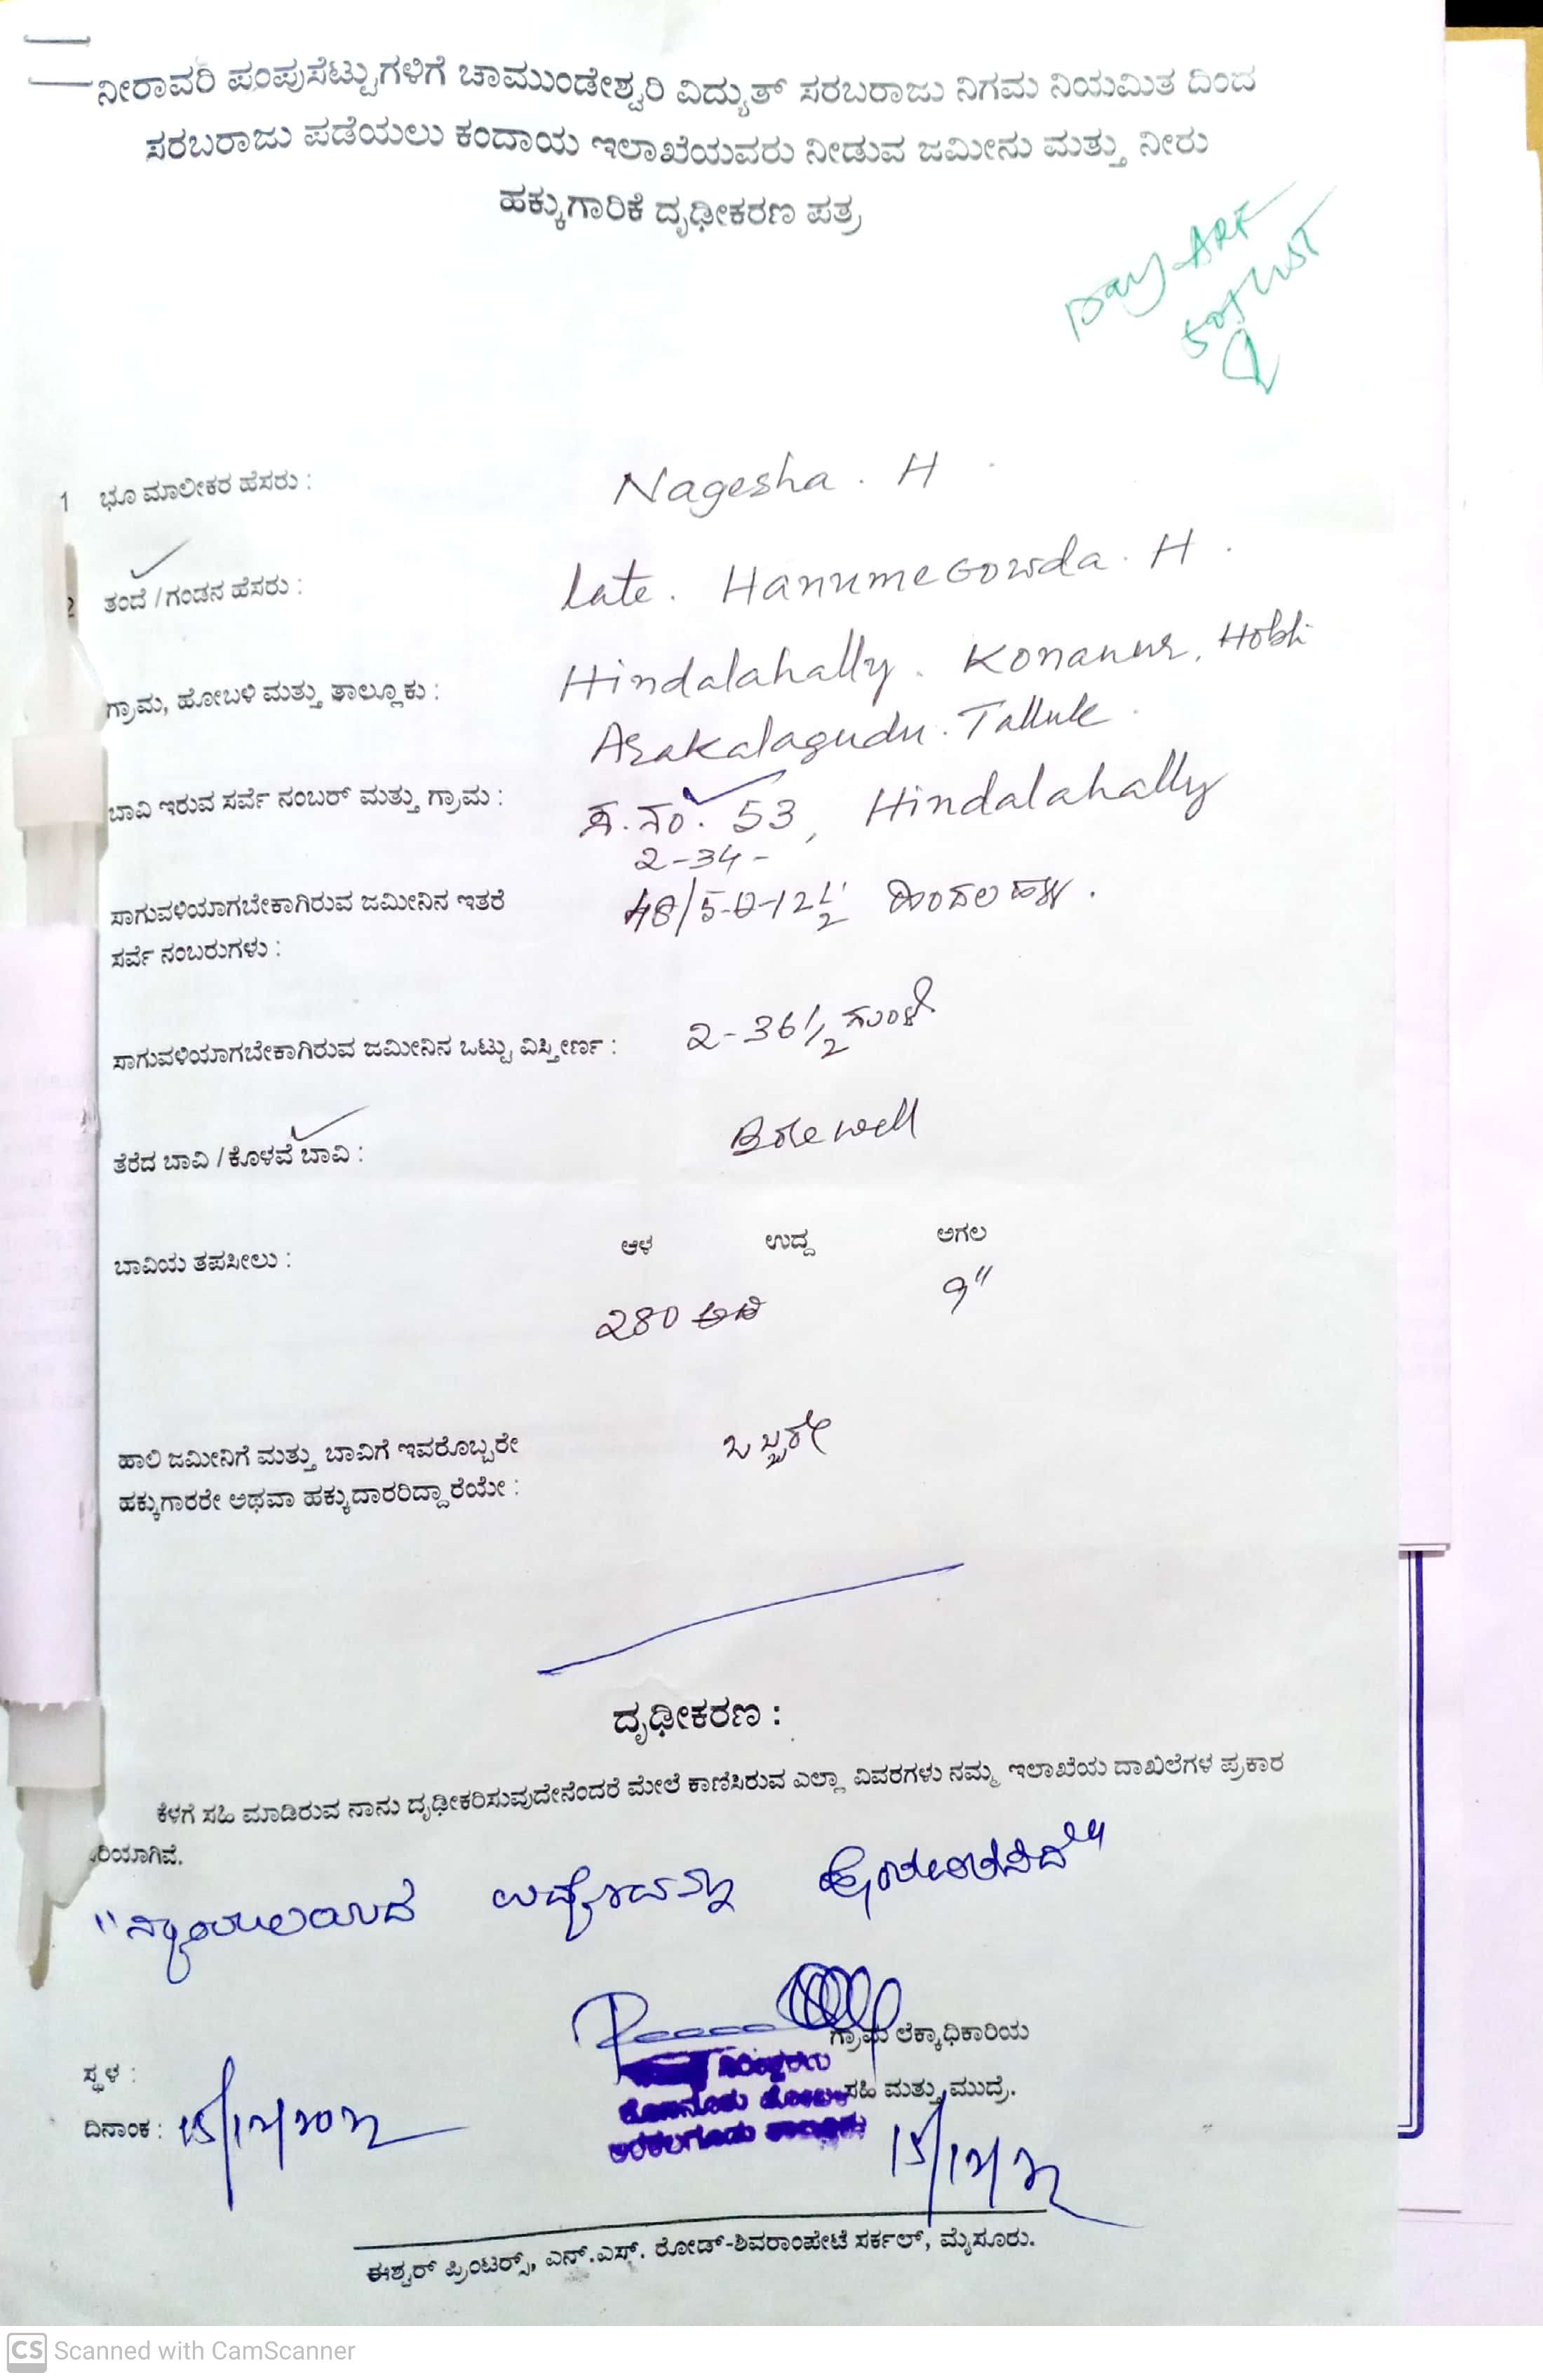 ನೀರಾವರಿ ಪಂಪುಸೆಟ್ಟುಗಳಿಗೆ ಚಾಮುಂಡೇಶ್ವರಿ ವಿದ್ಯುತ್ ಸರಬರಾಜು ನಿಗಮ ನಿಯಮಿತ ದಿಂದ
ಸರಬರಾಜು ಪಡೆಯಲು ಕಂದಾಯ ಇಲಾಖೆಯವರು ನೀಡುವ ಜಮೀನು ಮತ್ತು ನೀರು
ಹಕ್ಕುಗಾರಿಕೆ ದೃಢೀಕರಣ ಪತ್ರ
1 ಭೂ ಮಾಲೀಕರ ಹೆಸರು : Nagesha . H
2 ತಂದೆ / ಗಂಡನ ಹೆಸರು : Late . HanumeGowda . H .
ಗ್ರಾಮ, ಹೋಬಳಿ ಮತ್ತು ತಾಲ್ಲೂಕು : Hindalahally . Konanur, Hobli
Arakalagudu . Talluk .
ಬಾವಿ ಇರುವ ಸರ್ವೆ ನಂಬರ್ ಮತ್ತು ಗ್ರಾಮ : ಸ. ನಂ. 53, Hindalahally
2-34-
ಸಾಗುವಳಿಯಾಗಬೇಕಾಗಿರುವ ಜಮೀನಿನ ಇತರೆ 48/5-0-12 1/2 ಹಿಂದಲಹಳ್ಳಿ .
ಸರ್ವೆ ನಂಬರುಗಳು :
ಸಾಗುವಳಿಯಾಗಬೇಕಾಗಿರುವ ಜಮೀನಿನ ಒಟ್ಟು ವಿಸ್ತೀರ್ಣ : 2-36 1/2 ಗುಂಟೆ
ತೆರೆದ ಬಾವಿ / ಕೊಳವೆ ಬಾವಿ : Borewell
ಬಾವಿಯ ತಪಸೀಲು : ಆಳ ಉದ್ದ ಅಗಲ
280 ಅಡಿ 9"
ಹಾಲಿ ಜಮೀನಿಗೆ ಮತ್ತು ಬಾವಿಗೆ ಇವರೊಬ್ಬರೇ ಒಬ್ಬರೇ
ಹಕ್ಕುಗಾರರೇ ಅಥವಾ ಹಕ್ಕುದಾರರಿದ್ದಾರೆಯೇ :
ದೃಢೀಕರಣ :
ಕೆಳಗೆ ಸಹಿ ಮಾಡಿರುವ ನಾನು ದೃಢೀಕರಿಸುವುದೇನೆಂದರೆ ಮೇಲೆ ಕಾಣಿಸಿರುವ ಎಲ್ಲಾ ವಿವರಗಳು ನಮ್ಮ ಇಲಾಖೆಯ ದಾಖಲೆಗಳ ಪ್ರಕಾರ
ರಿಯಾಗಿವೆ.
ಗ್ರಾಮ ಲೆಕ್ಕಾಧಿಕಾರಿಯ
ಸ್ಥಳ :
ಕೊಣನೂರು ಹೋಬಳಿ ಸಹಿ ಮತ್ತು ಮುದ್ರೆ.
ದಿನಾಂಕ : 15/12/2022 ಅರಕಲಗೂಡು ತಾಲ್ಲೂಕು
15/12/22
ಈಶ್ವರ್ ಪ್ರಿಂಟರ್ಸ್, ಎನ್.ಎಸ್. ರೋಡ್-ಶಿವರಾಂಪೇಟೆ ಸರ್ಕಲ್, ಮೈಸೂರು.
CS Scanned with CamScanner